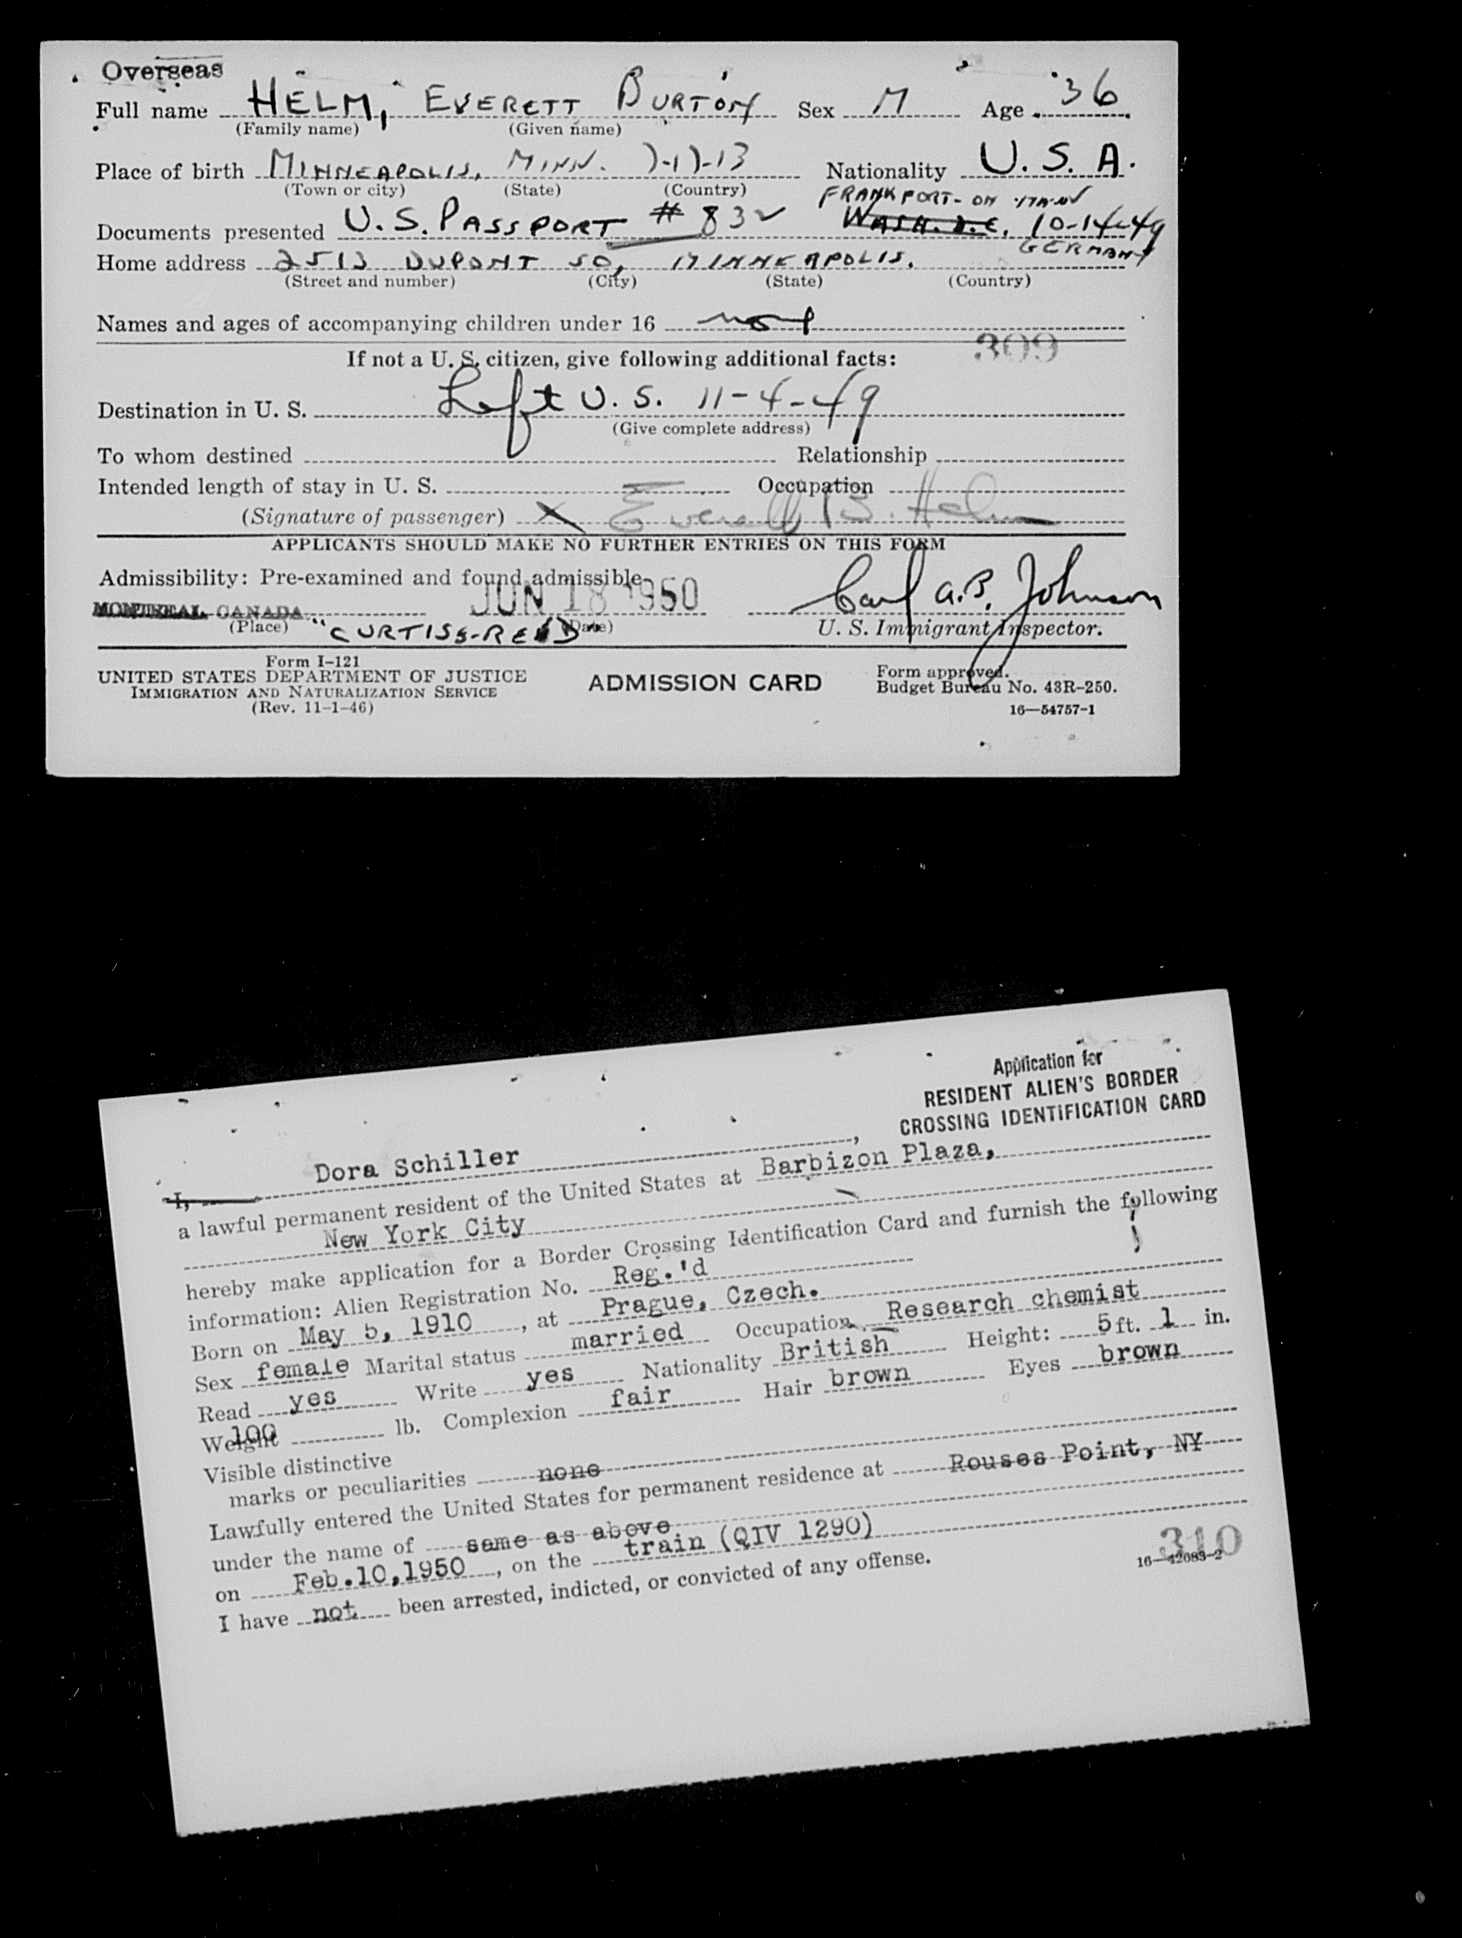 Overseas
Full name HELM, EVERETT BURTON Sex M Age 36
(Family name) (Given name)
Place of birth MINNEAPOLIS, MINN. 7-17-13 Nationality U. S. A.
(Town or city) (State) (Country)
FRANKFORT-ON MAIN
Documents presented U.S. PASSPORT # 832 WASH. D.C. 10-14-49
GERMANY
Home address 2513 DUPONT SO, MINNEAPOLIS.
(Street and number) (City) (State) (Country)
Names and ages of accompanying children under 16 none
309
If not a U. S. citizen, give following additional facts:
Destination in U. S. Left U. S. 11-4-49
(Give complete address)
To whom destined Relationship
Intended length of stay in U. S. Occupation
(Signature of passenger) X Everett B. Helm
APPLICANTS SHOULD MAKE NO FURTHER ENTRIES ON THIS FORM
Admissibility: Pre-examined and found admissible
MONTREAL CANADA JUN 18 1950 Carl A.B. Johnson
(Place) "CURTISS-REID" (Date) U. S. Immigrant Inspector.
Form I-121
UNITED STATES DEPARTMENT OF JUSTICE
IMMIGRATION AND NATURALIZATION SERVICE
(Rev. 11-1-46)
ADMISSION CARD
Form approved.
Budget Bureau No. 43R-250.
16—54757-1
Application for
RESIDENT ALIEN'S BORDER
CROSSING IDENTIFICATION CARD
I, Dora Schiller,
a lawful permanent resident of the United States at Barbizon Plaza,
New York City
hereby make application for a Border Crossing Identification Card and furnish the following
information: Alien Registration No. Reg.'d
Born on May 5, 1910, at Prague, Czech.
Sex female Marital status married Occupation Research chemist
Read yes Write yes Nationality British Height: 5 ft. 1 in.
Weight 100 lb. Complexion fair Hair brown Eyes brown
Visible distinctive
marks or peculiarities none
Lawfully entered the United States for permanent residence at Rouses Point, NY
under the name of same as above
on Feb.10,1950, on the train (QIV 1290)
I have not been arrested, indicted, or convicted of any offense.
310
16—42083-2